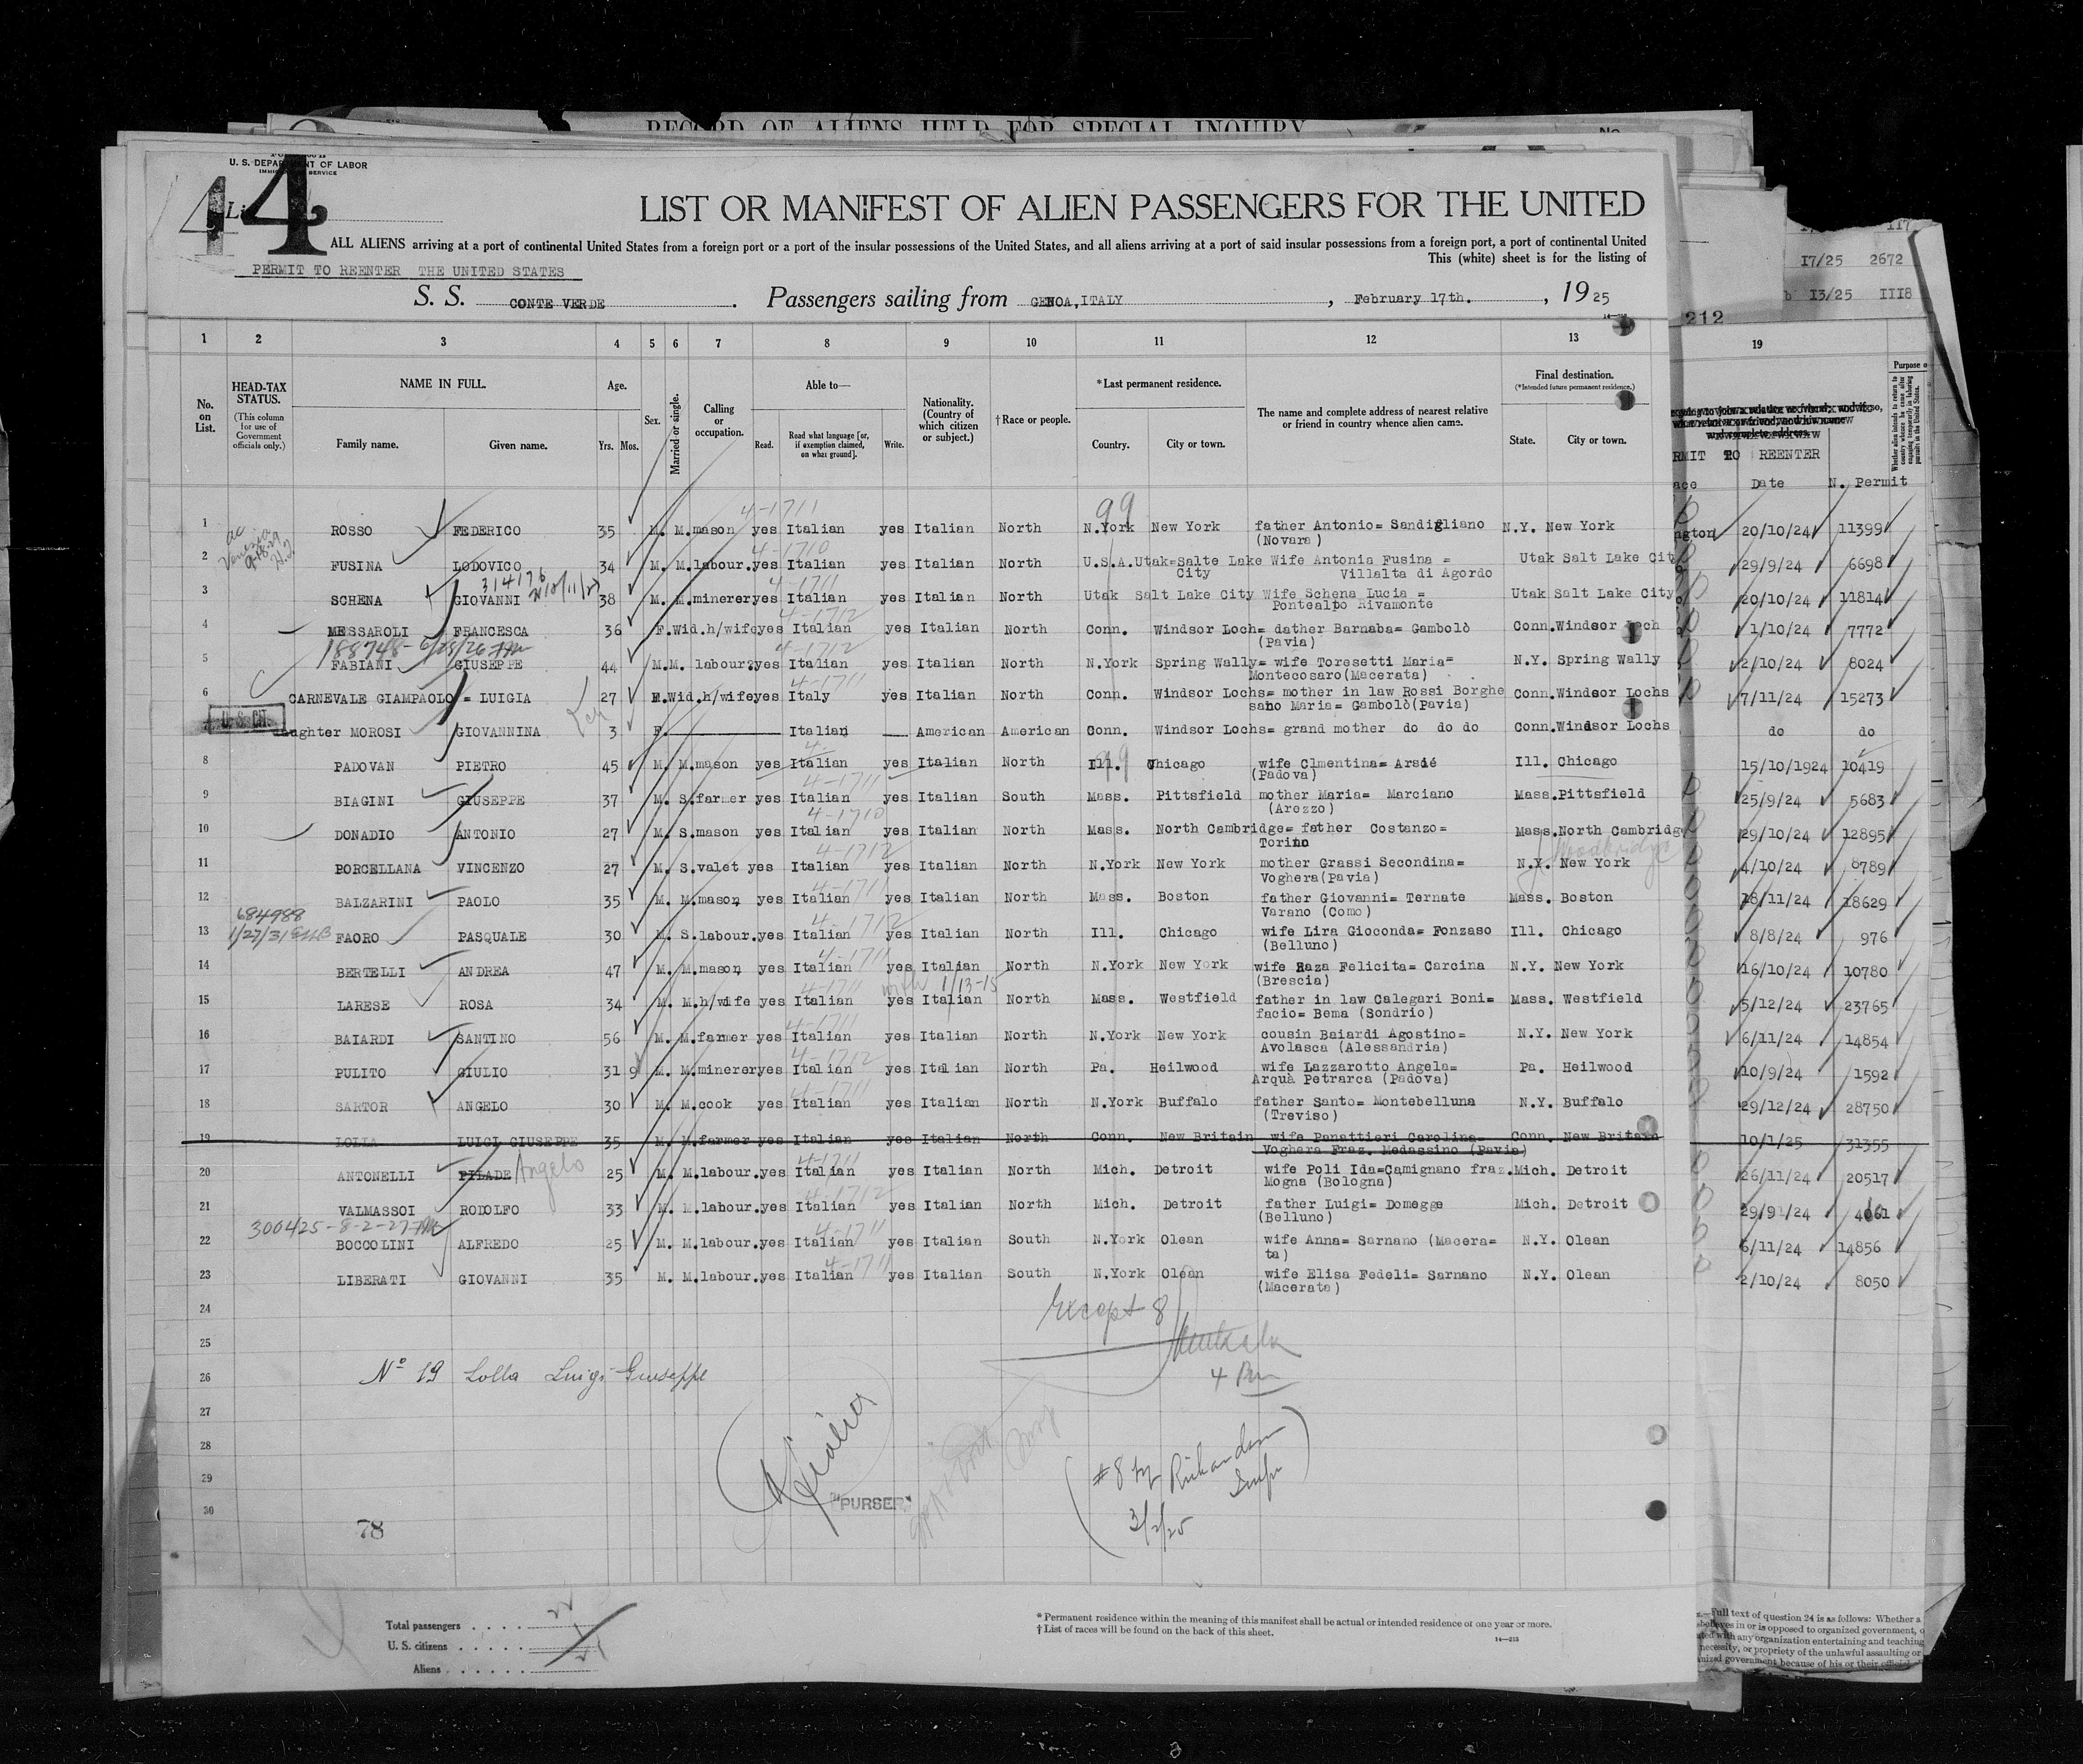 RECORD OF ALIENS HELD FOR SPECIAL INQUIRY
U. S. DEPARTMENT OF LABOR
IMMIGRATION SERVICE
4 4
LIST OR MANIFEST OF ALIEN PASSENGERS FOR THE UNITED
ALL ALIENS arriving at a port of continental United States from a foreign port or a port of the insular possessions of the United States, and all aliens arriving at a port of said insular possessions from a foreign port, a port of continental United
This (white) sheet is for the listing of
PERMIT TO REENTER THE UNITED STATES
S. S. CONTE VERDE. Passengers sailing from GENOA, ITALY, February 17th., 1925
17/25 2672
13/25 1118
212
1 2 3 4 5 6 7 8 9 10 11 12 13 19
No. on List.
HEAD-TAX STATUS.
(This column for use of Government officials only.)
NAME IN FULL.
Family name. Given name.
Age.
Yrs. Mos.
Sex.
Married or single.
Calling or occupation.
Able to—
Read. Read what language [or, if exemption claimed, on what ground]. Write.
Nationality. (Country of which citizen or subject.)
†Race or people.
*Last permanent residence.
Country. City or town.
The name and complete address of nearest relative or friend in country whence alien came.
Final destination.
(*Intended future permanent residence.)
State. City or town.
RMIT TO REENTER
ace Date N. Permit
1 ROSSO FEDERICO 35 M. M. mason yes Italian yes Italian North N.York New York father Antonio= Sandigliano (Novara) N.Y. New York ngton 20/10/24 11399
2 FUSINA LODOVICO 34 M. M. labour. yes Italian yes Italian North U.S.A. Utak=Salte Lake City Wife Antonia Fusina = Villalta di Agordo Utak Salt Lake Cit 29/9/24 6698
314176
3 SCHENA GIOVANNI 38 M. M. minerer yes Italian yes Italian North Utak Salt Lake City Wife Schena Lucia = Pontealto Rivamonte Utak Salt Lake City 20/10/24 11814
4 MESSAROLI FRANCESCA 36 F. Wid. h/wife yes Italian yes Italian North Conn. Windsor Loch= dather Barnaba= Gambolò (Pavia) Conn. Windsor Loch 1/10/24 7772
188748-6/25/26
5 FABIANI GIUSEPPE 44 M. M. labour. yes Italian yes Italian North N.York Spring Wally= wife Toresetti Maria= Montecosaro(Macerata) N.Y. Spring Wally 2/10/24 8024
6 CARNEVALE GIAMPAOLO = LUIGIA 27 F. Wid. h/wife yes Italy yes Italian North Conn. Windsor Lochs= mother in law Rossi Borghe sano Maria= Gambolò(Pavia) Conn. Windsor Lochs 7/11/24 15273
U. S. CIT.
daughter MOROSI GIOVANNINA 3 F. Italian American American Conn. Windsor Lochs= grand mother do do do Conn. Windsor Lochs do do
8 PADOVAN PIETRO 45 M. M. mason yes Italian yes Italian North Ill. Chicago wife Clmentina= Arsié (Padova) Ill. Chicago 15/10/1924 10419
9 BIAGINI GIUSEPPE 37 M. S. farmer yes Italian yes Italian South Mass. Pittsfield mother Maria= Marciano (Arezzo) Mass. Pittsfield 25/9/24 5683
10 DONADIO ANTONIO 27 M. S. mason yes Italian yes Italian North Mass. North Cambridge= father Costanzo= Torino Mass. North Cambridge 29/10/24 12895
11 PORCELLANA VINCENZO 27 M. S. valet yes Italian yes Italian North N.York New York mother Grassi Secondina= Voghera(Pavia) N.Y. New York 4/10/24 8789
12 BALZARINI PAOLO 35 M. M. mason yes Italian yes Italian North Mass. Boston father Giovanni= Ternate Varano (Como) Mass. Boston 18/11/24 18629
684988
1/27/31
13 FAORO PASQUALE 30 M. S. labour. yes Italian yes Italian North Ill. Chicago wife Lira Gioconda= Fonzaso (Belluno) Ill. Chicago 8/8/24 976
14 BERTELLI ANDREA 47 M. M. mason yes Italian yes Italian North N.York New York wife Raza Felicita= Carcina (Brescia) N.Y. New York 16/10/24 10780
15 LARESE ROSA 34 M. M. h/wife yes Italian yes Italian North Mass. Westfield father in law Calegari Boni= facio= Bema (Sondrio) Mass. Westfield 5/12/24 23765
16 BAIARDI SANTINO 56 M. M. farmer yes Italian yes Italian North N.York New York cousin Baiardi Agostino= Avolasca (Alessandria) N.Y. New York 6/11/24 14854
17 PULITO GIULIO 31 9 M. M. minerer yes Italian yes Italian North Pa. Heilwood wife Lazzarotto Angela= Arquà Petrarca (Padova) Pa. Heilwood 10/9/24 1592
18 SARTOR ANGELO 30 M. M. cook yes Italian yes Italian North N.York Buffalo father Santo= Montebelluna (Treviso) N.Y. Buffalo 29/12/24 28750
19 LOLLA LUIGI GIUSEPPE 35 M. M. farmer yes Italian yes Italian North Conn. New Britain wife Panattieri Carolina= Voghera Fraz. Medassino (Pavia) Conn. New Britain 10/1/25 31355
20 ANTONELLI PILADE Angelo 25 M. M. labour. yes Italian yes Italian North Mich. Detroit wife Poli Ida=Camignano fraz. Mogna (Bologna) Mich. Detroit 26/11/24 20517
21 VALMASSOI RODOLFO 33 M. M. labour. yes Italian yes Italian North Mich. Detroit father Luigi= Domegge (Belluno) Mich. Detroit 29/9/24 4061
300425-8-2-27
22 BOCCOLINI ALFREDO 25 M. M. labour. yes Italian yes Italian South N.York Olean wife Anna= Sarnano (Macera= ta) N.Y. Olean 6/11/24 14856
23 LIBERATI GIOVANNI 35 M. M. labour. yes Italian yes Italian South N.York Olean wife Elisa Fedeli= Sarnano (Macerata) N.Y. Olean 2/10/24 8050
24
Except 8
25
26 Nº 19 Lolla Luigi Giuseppe
27
28
29
30
"PURSER"
#8 by Richardson Insp
3/2/25
78
Total passengers
U. S. citizens
Aliens
* Permanent residence within the meaning of this manifest shall be actual or intended residence of one year or more.
† List of races will be found on the back of this sheet.
14—213
Full text of question 24 is as follows: Whether a
believes in or is opposed to organized government, o
ated with any organization entertaining and teaching
necessity, or propriety of the unlawful assaulting or
anized government because of his or their official